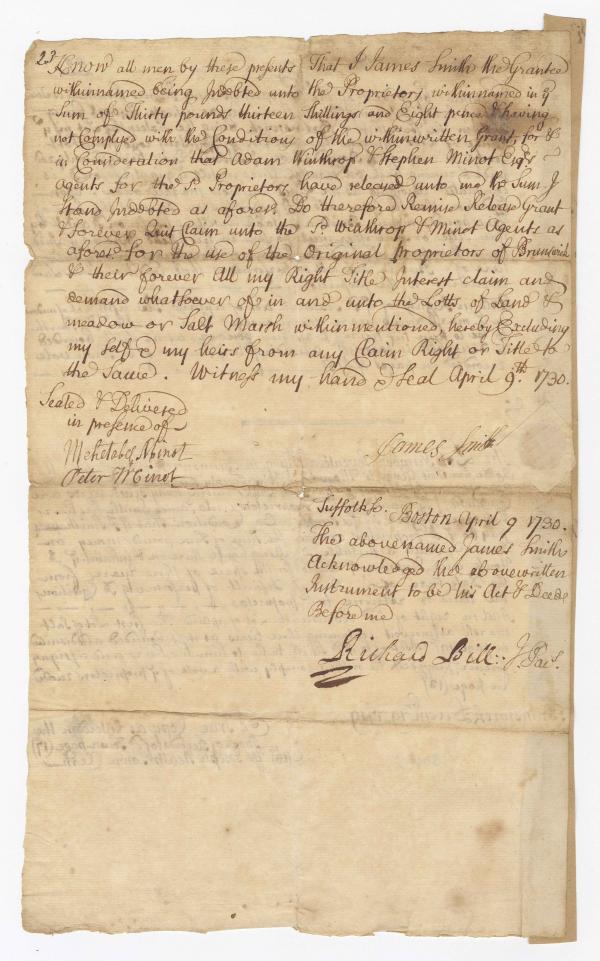 23
Know all men by these presents That I James Smith the Grantee
withinnamed being Indebted unto the Proprietors withinnamed in ye
Sum of Thirty pounds thirteen Shillings and Eight pence & having
not Complyed with the Conditions of the withinwritten Grant, for &
in Consideration that Adam Winthrop & Stephen Minot Esqrs
Agents for the sd. Proprietors have released unto me the Sum I
stand Indebted as aforesd. Do therefore Remise Release Grant
& forever Quit Claim unto the sd. Winthrop & Minot Agents as
aforesd. for the use of the Original Proprietors of Brunswick
& their forever All my Right Title Interest claim and
demand whatsoever of in and unto the Lotts of Land &
meadow or Salt Marsh withinmentioned, hereby Excluding
my self & my heirs from any Claim Right or Title to
the same. Witness my hand & Seal April 9th. 1730.
Sealed & Delivered
in presence of
Mehetabel Minot
Peter Minot
James Smith
Suffolk sc. Boston April 9 1730.
The abovenamed James Smith
Acknowledged the abovewritten
Instrument to be his Act & Deede
Before me
Richard Bill: J Pacs.